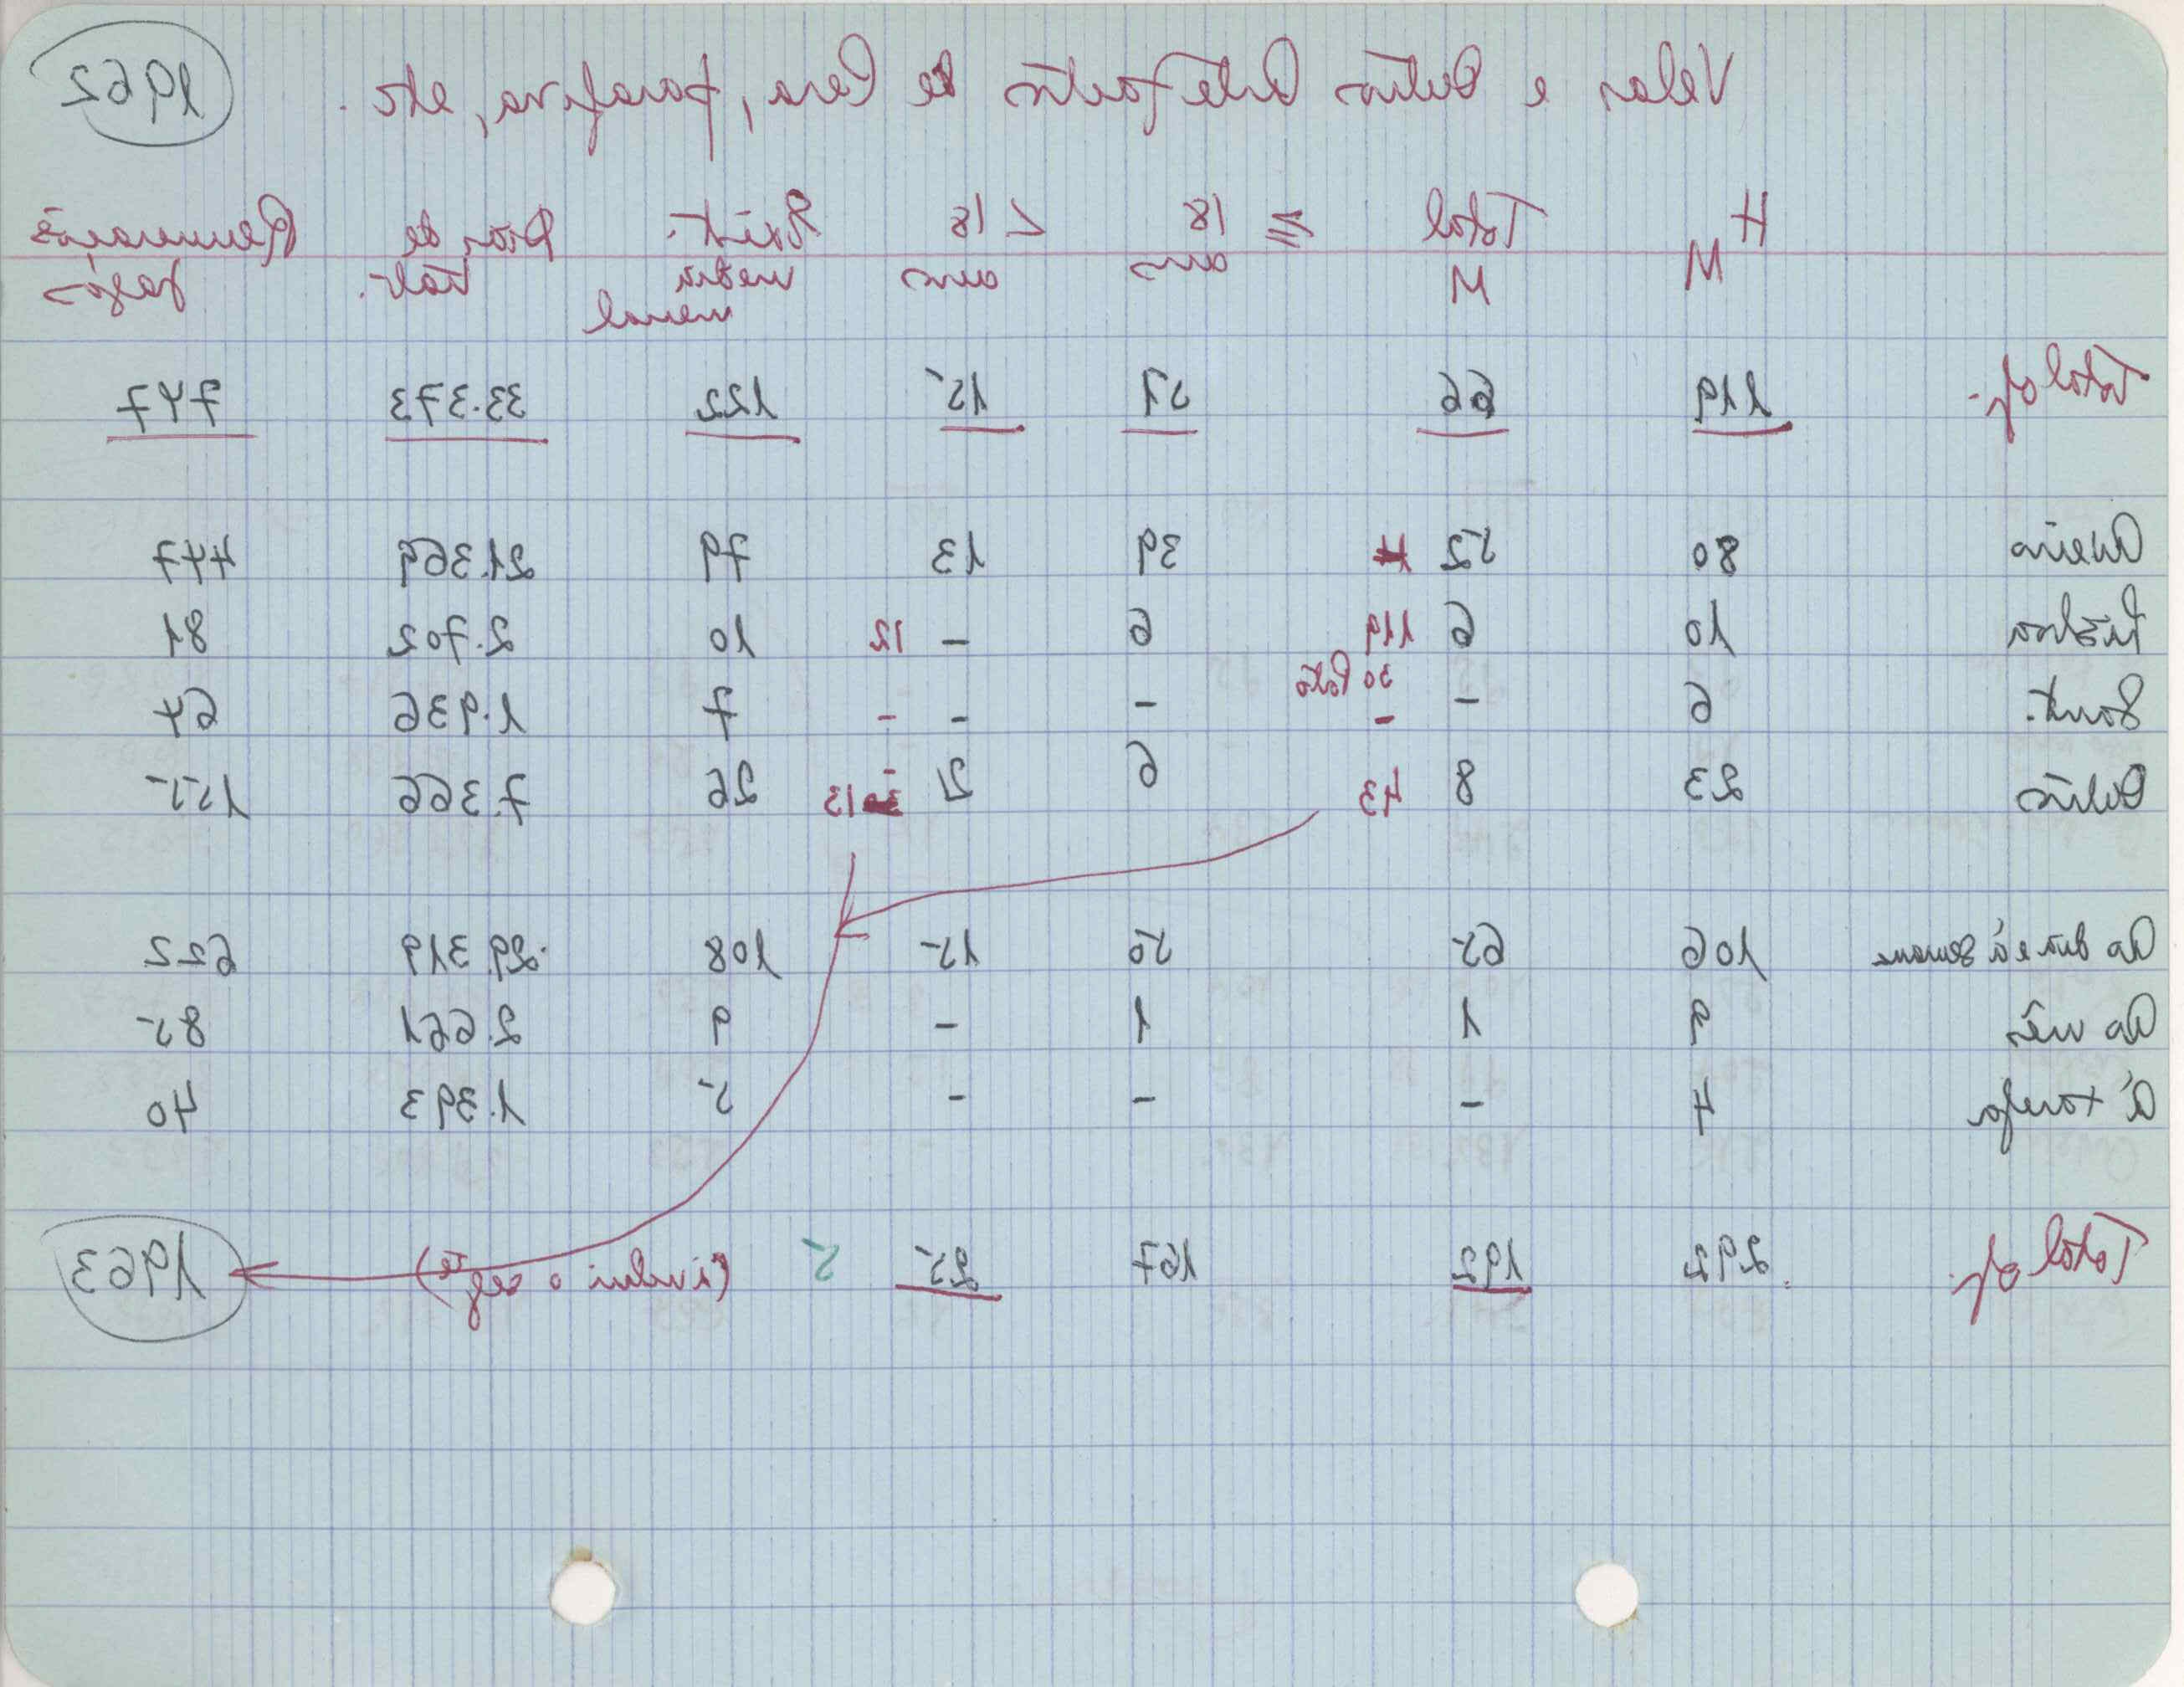 Velas e Outros Artefactos de Cera, parafina, etc. 1962
H M Total M ≥ 18 anos < 18 anos Exist. média mensal Dias de trab. Remunerações pagas
Total of. 119 66 51 15 122 33.373 747
Aveiro 80 52 H 39 13 79 21.369 447
Lisboa 10 6 119 6 - 12 10 2.702 81
30 Porto
Sant. 6 - - - - - 7 1.936 64
Outros 23 8 43 6 2 13 26 7.366 155
Ao dia e à semana 106 65 50 15 108 29.319 622
Ao mês 9 1 1 - 9 2.661 85
À tarefa 4 - - - 5 1.393 40
Total of. 292 192 167 25 5 (inclui o segte) 1963